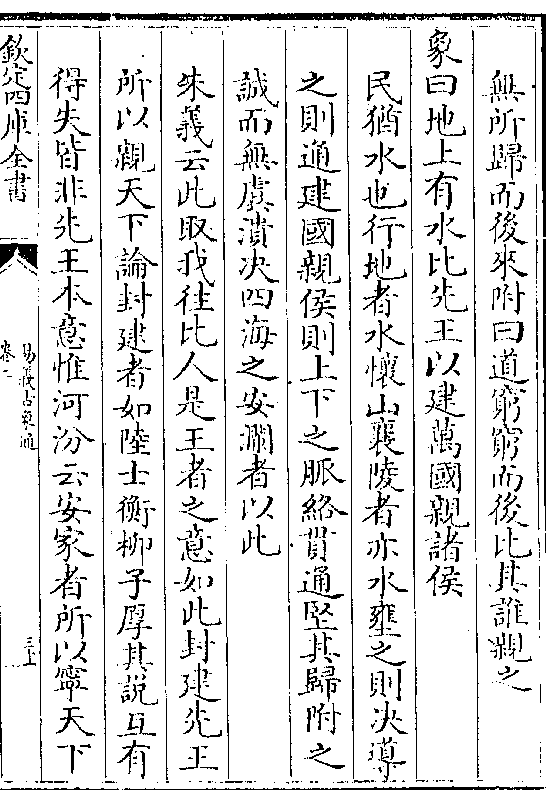 無所歸而後來附曰道窮窮而後比其誰親之
象曰地上有水比先王以建萬國親諸侯
民猶水也行地者水懷山襄陵者亦水壅之則决導
之則通建國親侯則上下之脈絡貫通堅其歸附之
誠而無虞潰决四海之安瀾者以此
朱義云此取我往比人是王者之意如此封建先王
所以親天下論封建者如陸士衡柳子厚其說互有
得失皆非先王本意惟河汾云安家者所以寧天下
欽定四庫全書
易義古象通
卷二
三十